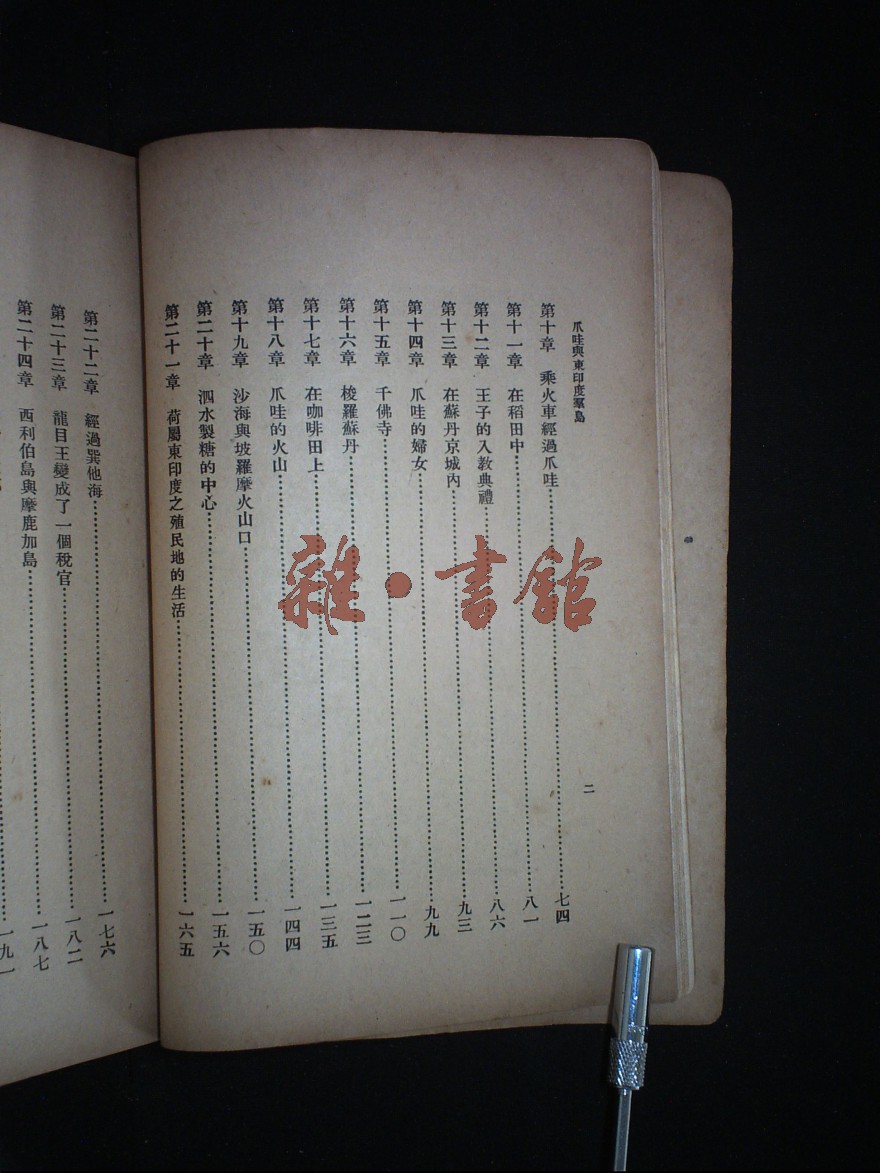 爪哇與東印度羣島
二
第十章　乘火車經過爪哇……七四
第十一章　在稻田中……八一
第十二章　王子的入教典禮……八六
第十三章　在蘇丹京城內……九三
第十四章　爪哇的婦女……九九
第十五章　千佛寺……一一〇
第十六章　梭羅蘇丹……一二三
第十七章　在咖啡田上……一三五
第十八章　爪哇的火山……一四四
第十九章　沙海與坡羅摩火山口……一五〇
第二十章　泗水製糖的中心……一五六
第二十一章　荷屬東印度之殖民地的生活……一六五
第二十二章　經過巽他海……一七六
第二十三章　龍目王變成了一個稅官……一八二
第二十四章　西利伯島與摩鹿加島……一八七
一九一
雜·書館